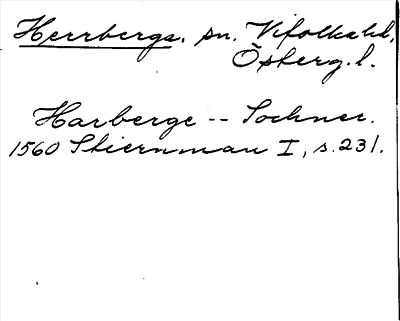 Herrbergs. sn. Vifolka hd,
Österg. l.
Harberge -- Sochner.
1560 Stiernman I, s. 231.